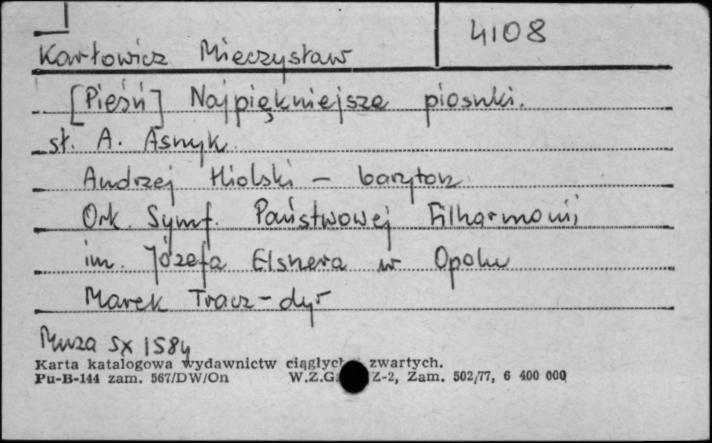 4108
Karłowicz Mieczysław
[Pieśń] Najpiękniejsze piosnki.
sł. A. Asnyk
Andrzej Hiolski - baryton
Ork. Symf. Państwowej Filharmonii
im. Józefa Elsnera w Opolu
Marek Tracz - dyr
Muza SX 1584
Karta katalogowa wydawnictw ciągłych zwartych.
Pu-B-144 zam. 567/DW/On W.Z.G. Z-2, Zam. 502/77, 6 400 000